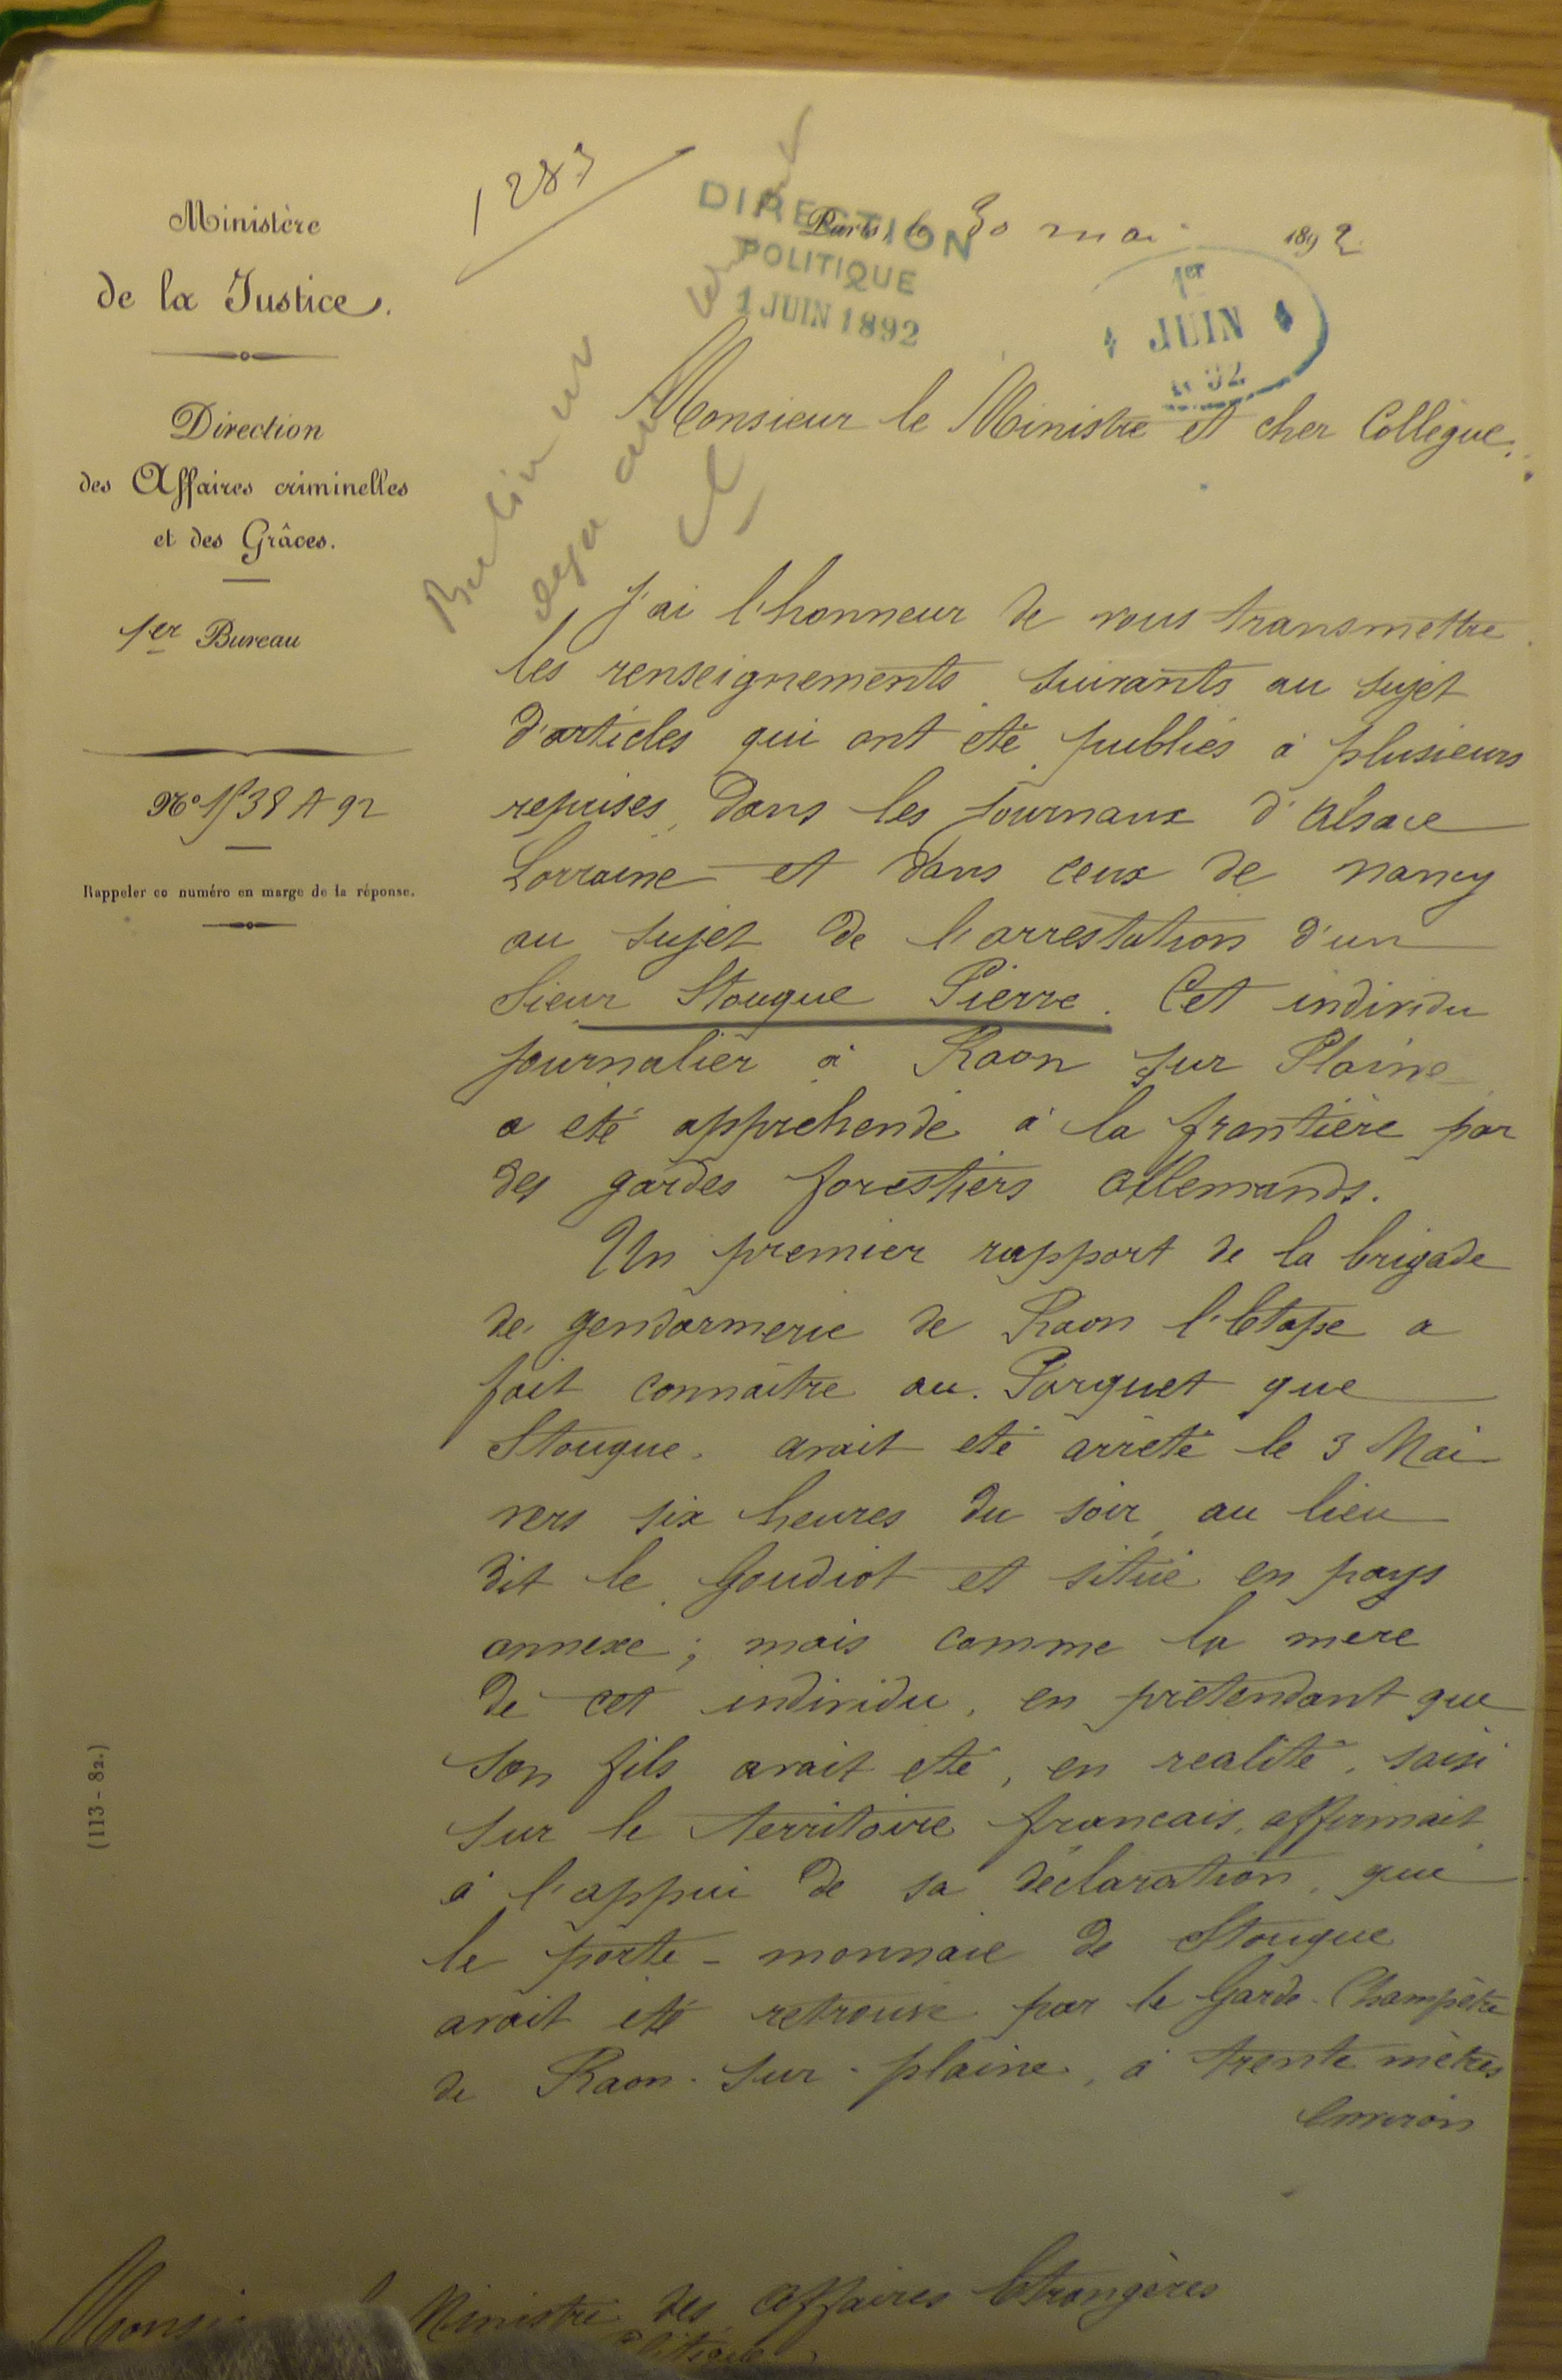 Ministère
de la Justice.
Direction
des Affaires criminelles
et des Grâces.
1er Bureau
No 1538 A 92
Rappeler ce numéro en marge de la réponse.
(113 - 82.)
1283
DIRECTION
POLITIQUE
1 JUIN 1892
Paris, le 30 mai 1892
1er
JUIN
92
Monsieur le Ministre et cher Collègue,
J'ai l'honneur de vous transmettre
les renseignements suivants au sujet
d'articles qui ont été publiés à plusieurs
reprises, dans les journaux d'Alsace
Lorraine et dans ceux de Nancy
au sujet de l'arrestation d'un
Sieur Stouque Pierre. Cet individu
journalier à Raon sur Plaine
a été appréhendé à la frontière par
des gardes forestiers allemands.
Un premier rapport de la brigade
de gendarmerie de Raon l'Etape a
fait connaître au Parquet que
Stouque avait été arrêté le 3 Mai
vers six heures du soir, au lieu
dit le Goudiot et situé en pays
annexé; mais comme la mère
de cet individu, en prétendant que
son fils avait été, en réalité, saisi
sur le territoire francais, affirmait
à l'appui de sa déclaration, que
le porte-monnaie de Stouque
avait été retrouvé par le Garde-Champêtre
de Raon-sur-plaine, à trente mètres
Environ
Ministre des Affaires Etrangères